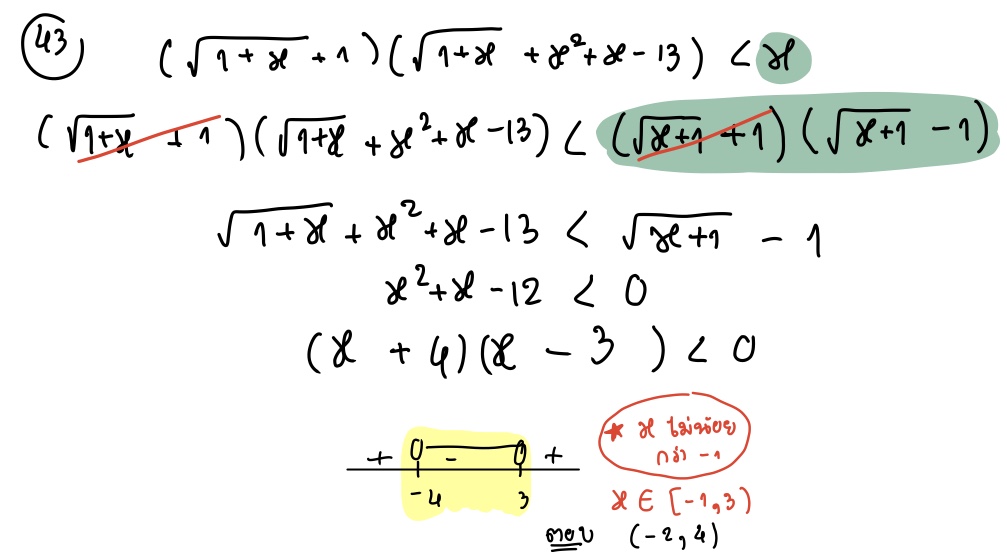 43 (√(1+x) + 1)(√(1+x) + x² + x - 13) < x
(√(1+x) + 1)(√(1+x) + x² + x - 13) < (√(x+1) + 1)(√(x+1) - 1)
√(1+x) + x² + x - 13 < √(x+1) - 1
x² + x - 12 < 0
(x + 4)(x - 3) < 0
+ - +
-4 3
* x ไม่น้อย
กว่า -1
x ∈ [-1, 3)
ตอบ (-2, 4)